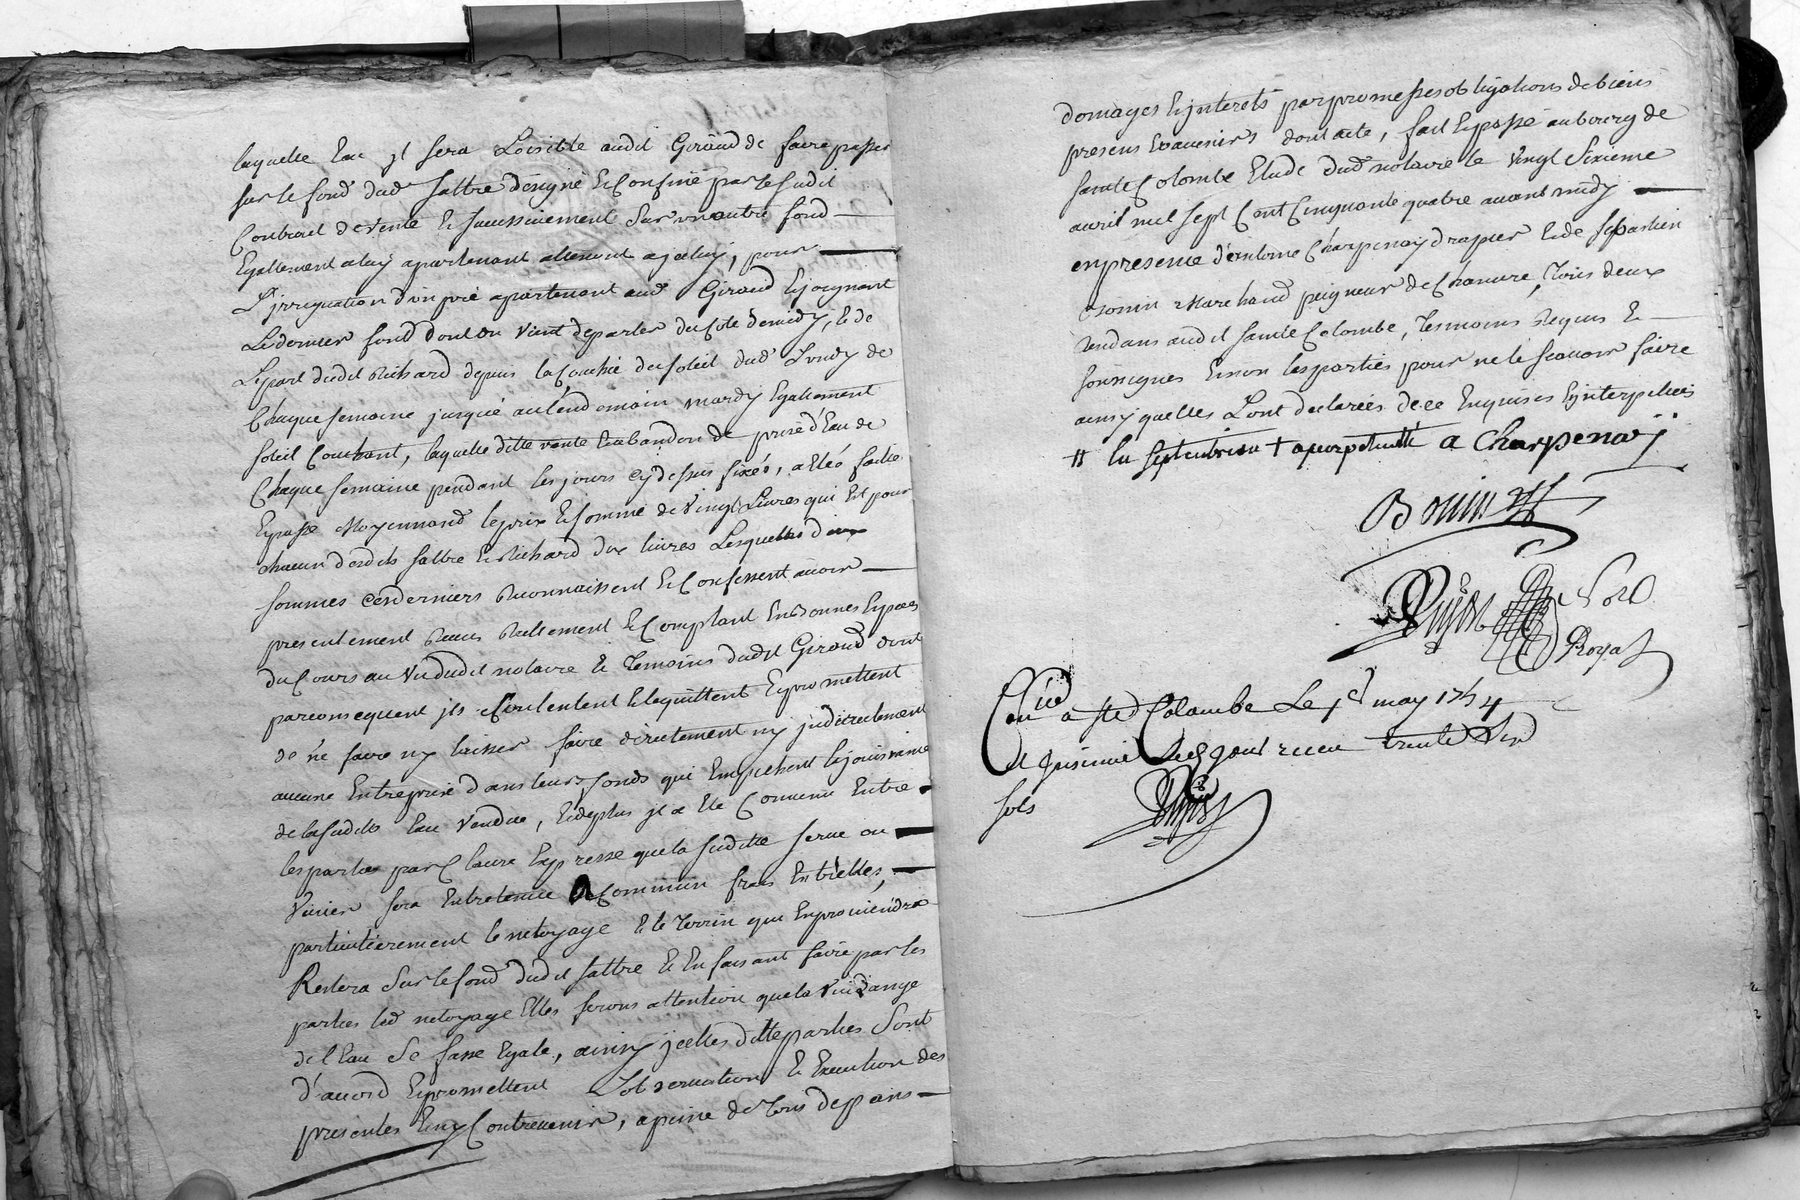 laquelle Eau jl sera Loisible audit Giraud de faire passer
sur le fond dud. sattre désigné & Confiné par le susdit
Contract de vente & successivement Sur un autre fond
Egallement a luy apartenant attenant a jceluy, pour
L'jrrigation d'un pré apartenant aud. Giraud & joignant
Le dernier fond dont on vient de parler du Coté de midy, & de
La part dudit Richard depuis la Couché du soleil dud. Lundy de
Chaque semaine jusqué au lendemain mardy Egalement
soleil Couchant, laquelle ditte vente & abandon de prise d'Eau de
Chaque semaine pendant les jours cy dessus fixés, a Eté faitte
& passé Moyennand le prix & somme de Vingt Livres qui Est pour
chacun desdits sattre & Richard dix livres Lesquelles dix
sommes ces derniers Reconnaissent & Confessent avoir
presentement Receu Reellement & Comptant En Bonnes Especes
du Cours au Vu dudit notaire & Temoins dudit Giraud dont
par consequent jls se Contentent & le quittent & promettent
de né faire ny laisser faire directement ny jndirectement
aucune Entreprise dans leurs fonds qui Empechent la jouissance
de la susditte Eau Vendue, & de plus jl a Eté Convenu Entre
les parties par Clause Expresse que la suditte serve ou
Vivier sera Entretenue a Commun frais Entr'elles,
particulierement le netoyage & le Terrin qui En proviendra
Restera Sur le fond dudit sattre & En faisant faire par les
parties led. netoyage Elles seront attention que la Vuidange
de l'Eau Se fasse Egale, ainsy jcelles ditte parties Sont
d'acord & promettent L'observation & Execution des
presentes & n'y Contrevenir, a peine de Tous depans
domages & jnterets par promesses obligations de biens
presens & avenirs dont acte, fait & passé au bourg de
sainte Colombe Etude dud. notaire le vingt sixieme
avril mil sept Cent Cinquante quatre avant midy
en presence d'Antoine Charpenay drapier & de sebastien
Bonin Marchand peigneur de Chanvre, Tous deux
Rendans audit sainte Colombe, Temoins Requis &
soussignés & non les parties pour ne le scavoir faire
ainsy quelles L'ont declarées de ce Enquises & jnterpelées
a perpetuitté a Charpenay
Bonin
Pujos Not.
Royal
Con. a ste Colombe Le 1er may 1754
sols
Pujos